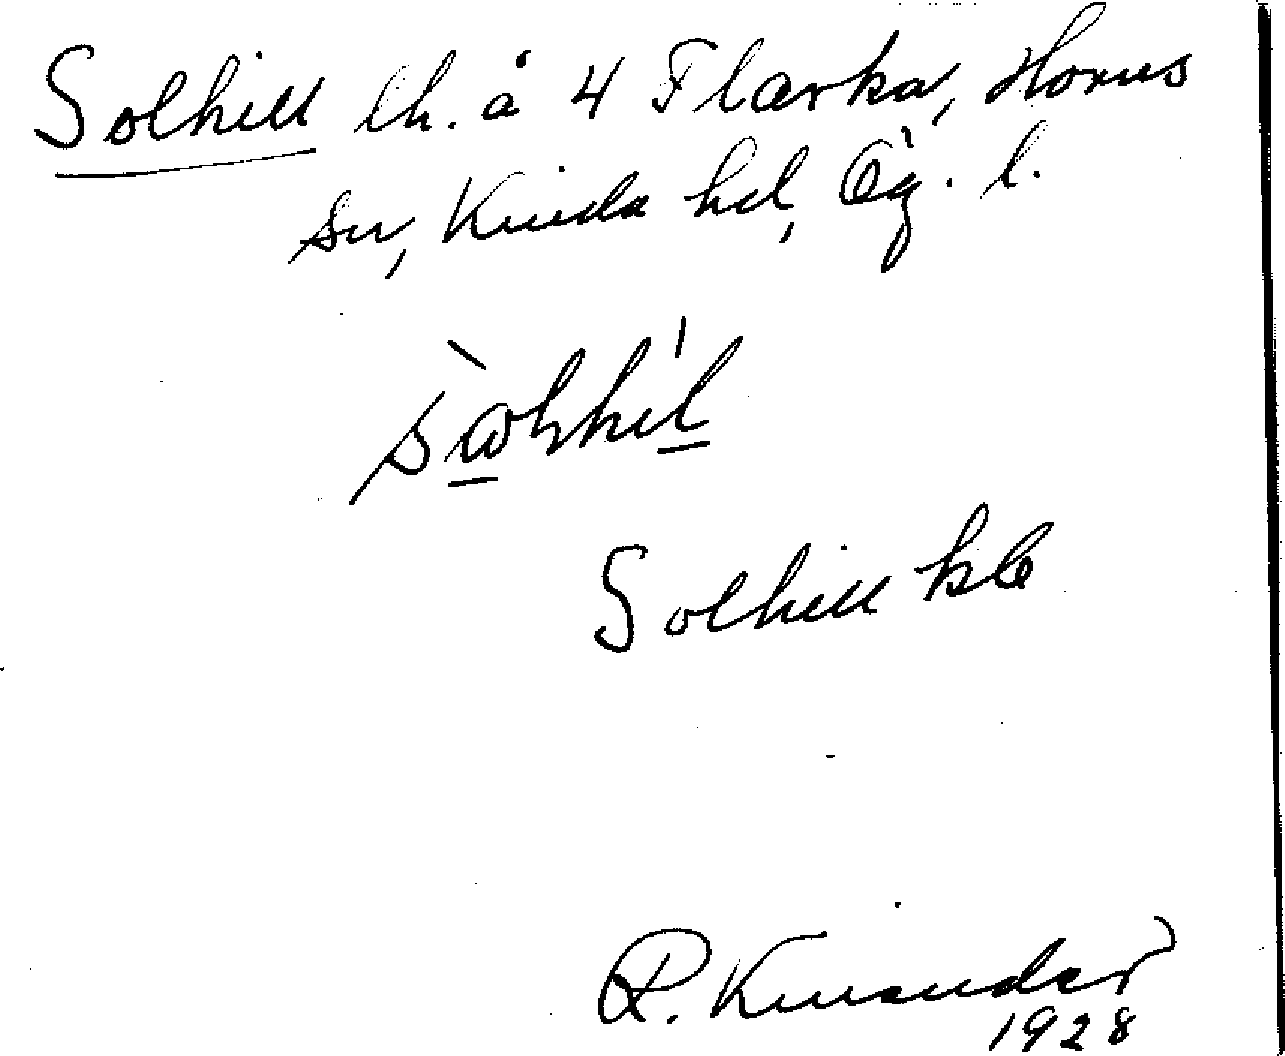 Solhill lh. å 4 Flarka, Horns
sn, Kinda hd, Ög. l.
sὼlhíl
Solhill kb
R. Kinander
1928